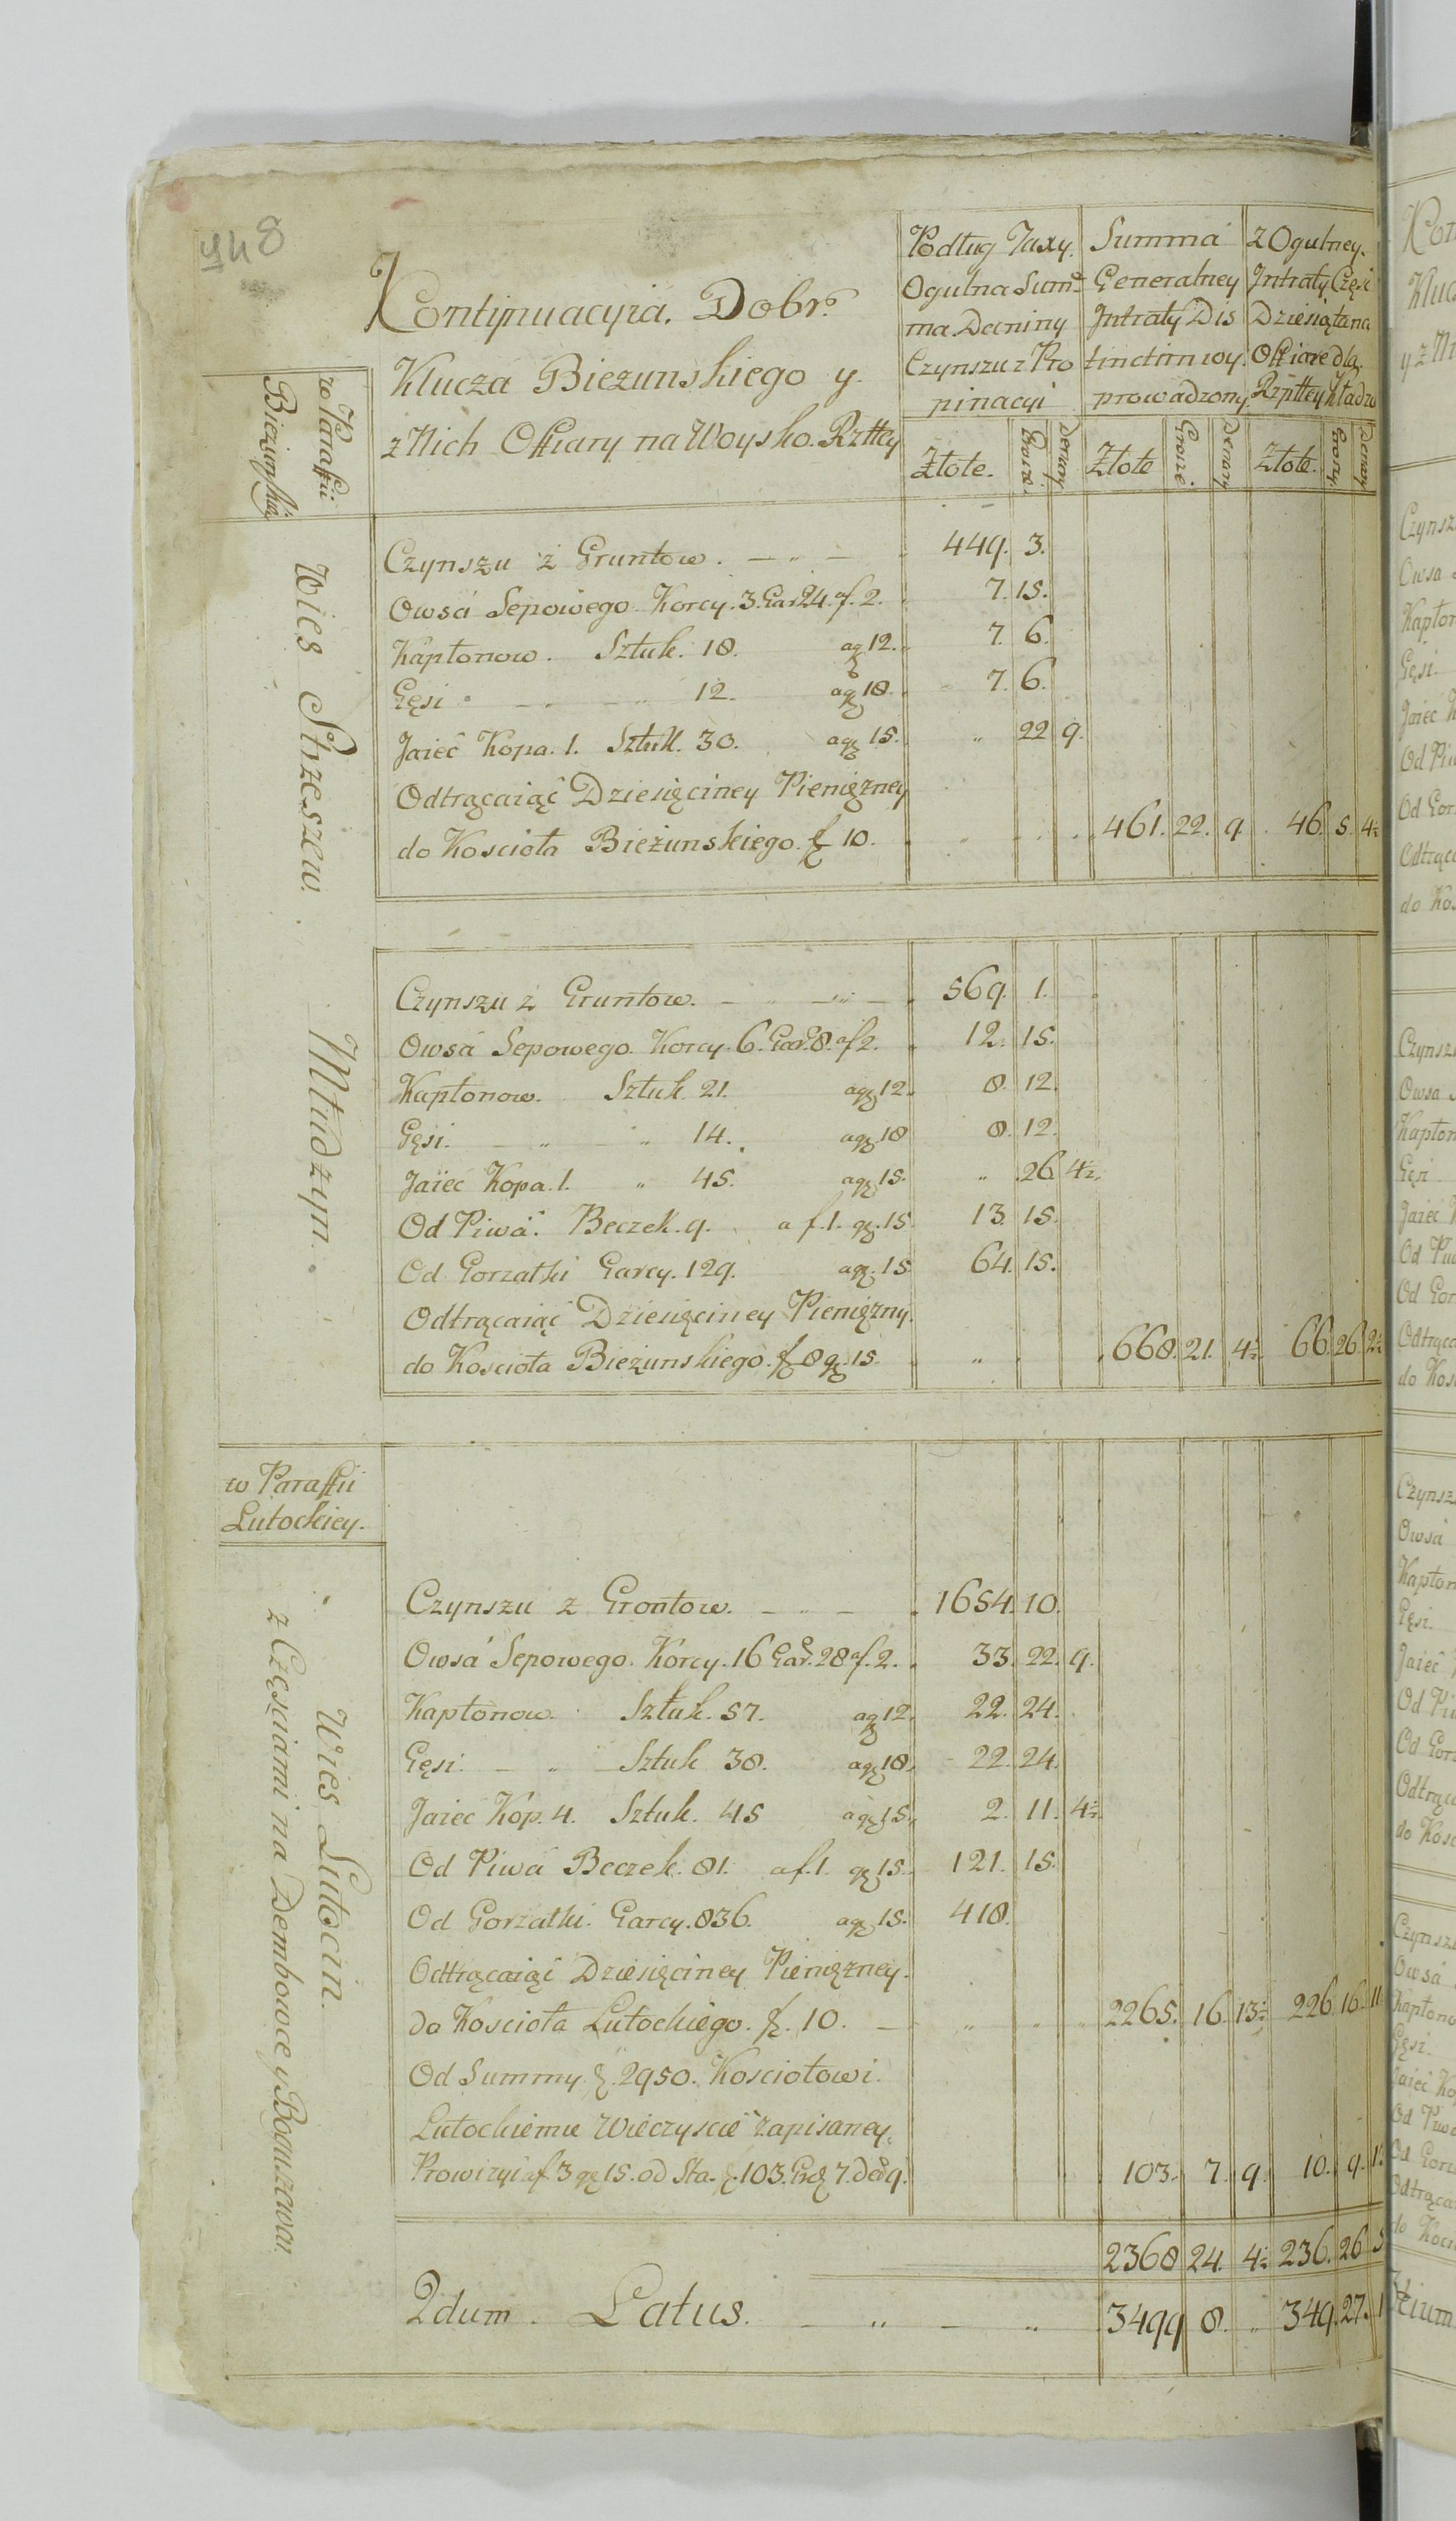 948
Kontijnuacyia. Dobr.
Klucza Bieżunskiego y.
z Nich Offiary na Woysko. Rzttey
Podług Taxy.
Ogulna Sum-
ma Daniny
Czynszu z Pro
pinacyi
Summa
Generalney
Jntraty Dis
tinctim wy.
prowadzony.
z Ogulney.
Jntraty Częśc
Dziesiąta na
Offiarę dla.
Rzpttey Kładzi
Złote. Grosze Denary Złote Grosze Denary Złote. Groszy Denary
w Paraffii
Bieżunskiey
Wies Strzeszew.
Czynszu z Gruntow. — „ — 449. 3.
Owsa Sepowego Korcy. 3. Gar. 24. af. 2. 7. 15.
Kapłonow. Sztuk. 18. ag 12. 7. 6.
Gęsi „ 12. agr 18. 7. 6.
Jaiec Kopa. 1. Sztuk. 30. agr 15. „ 22 9.
Odtrącaiąc Dziesięciney Pienięzney
do Kosciola Bieżunskiego. f 10. 461. 22. 9. 46. 5. 4½
Młudzyn.
Czynszu z Gruntow. — „ — 569. 1.
Owsa Sepowego. Korcy. 6. Gar. 8. af 2. 12. 15.
Kapłonow. Sztuk. 21. agr 12. 8. 12.
Gęsi. — „ „ 14. agr 18 8. 12.
Jaiec Kopa. 1. „ 45. agr 15. „ 26 4½.
Od Piwa. Beczek. 9. a f. 1. gr. 15. 13. 15.
Od Gorzałki Garcy. 129. agr. 15 64. 15.
Odtrącaiąc Dziesięciney Pienięzny.
do Kosciola Bieżunskiego. f 8 gr. 15. „ 668. 21. 4½. 66. 26. 2¼
w Paraffii
Lutockiey.
Wies Lutocin.
z Częsciami na Dembowce y Boguszewu.
Czynszu z Grontow. — „ — 1654. 10.
Owsa Sepowego. Korcy. 16 Gar. 28 af. 2. 33. 22. 9.
Kapłonow. Sztuk. 57. agr 12. 22. 24.
Gęsi. — „ — Sztuk 38. agr 18. 22. 24.
Jaiec Kop. 4. Sztuk. 45 agr 15. 2. 11. 4½.
Od Piwa Beczek. 81. af. 1. gr 15. 121. 15.
Od Gorzałki. Garcy. 836. agr 15. 418.
Odtrącaiąc Dziesięciney Pienięzney.
do Kosciola Lutockiego. f. 10. — „ 2265. 16. 13½ 226. 16. 11
Od Summy f. 2950. Kosciolowi.
Lutockiemu Wieczyscie zapisaney.
Prowizyi af 3 gr 15. od Sta. f. 103. Gr 7. Den 9. 103. 7. 9. 10. 9. 1
2368 24. 4½ 236. 26 5
2dum. Latus. — „ — „ 3499 8. „ 349. 27. 1